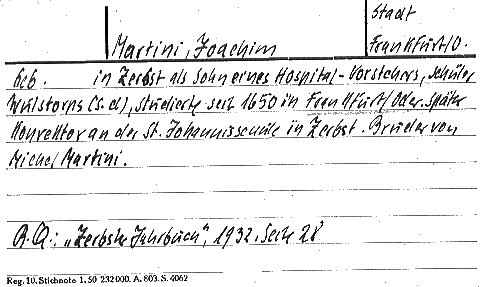 Stadt
Martini, Joachim Frankfurt/O.
Geb. in Zerbst als Sohn eines Hospital-Vorstehers, Schüler
Wulstorps (s.d.), studierte seit 1650 in Frankfurt/Oder. Später
Konrektor an der St. Johannisschule in Zerbst. Bruder von
Michel Martini.
B.Q.: „Zerbster Jahrbuch", 1932. Seite 28
Reg. 10. Stichnote 1. 50 232000. A. 803. S. 4062